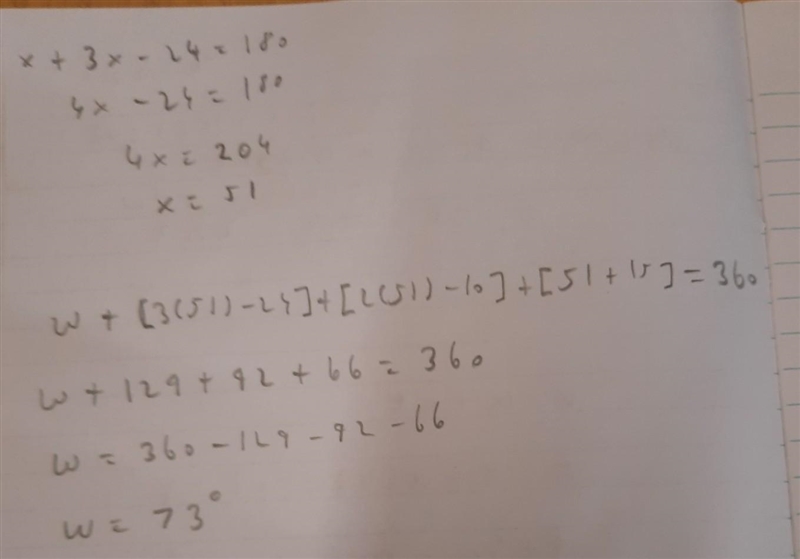 x + 3x - 24 = 180
4x - 24 = 180
4x = 204
x = 51
w + [3(51) - 24] + [2(51) - 10] + [51 + 15] = 360
w + 129 + 92 + 66 = 360
w = 360 - 129 - 92 - 66
w = 73°